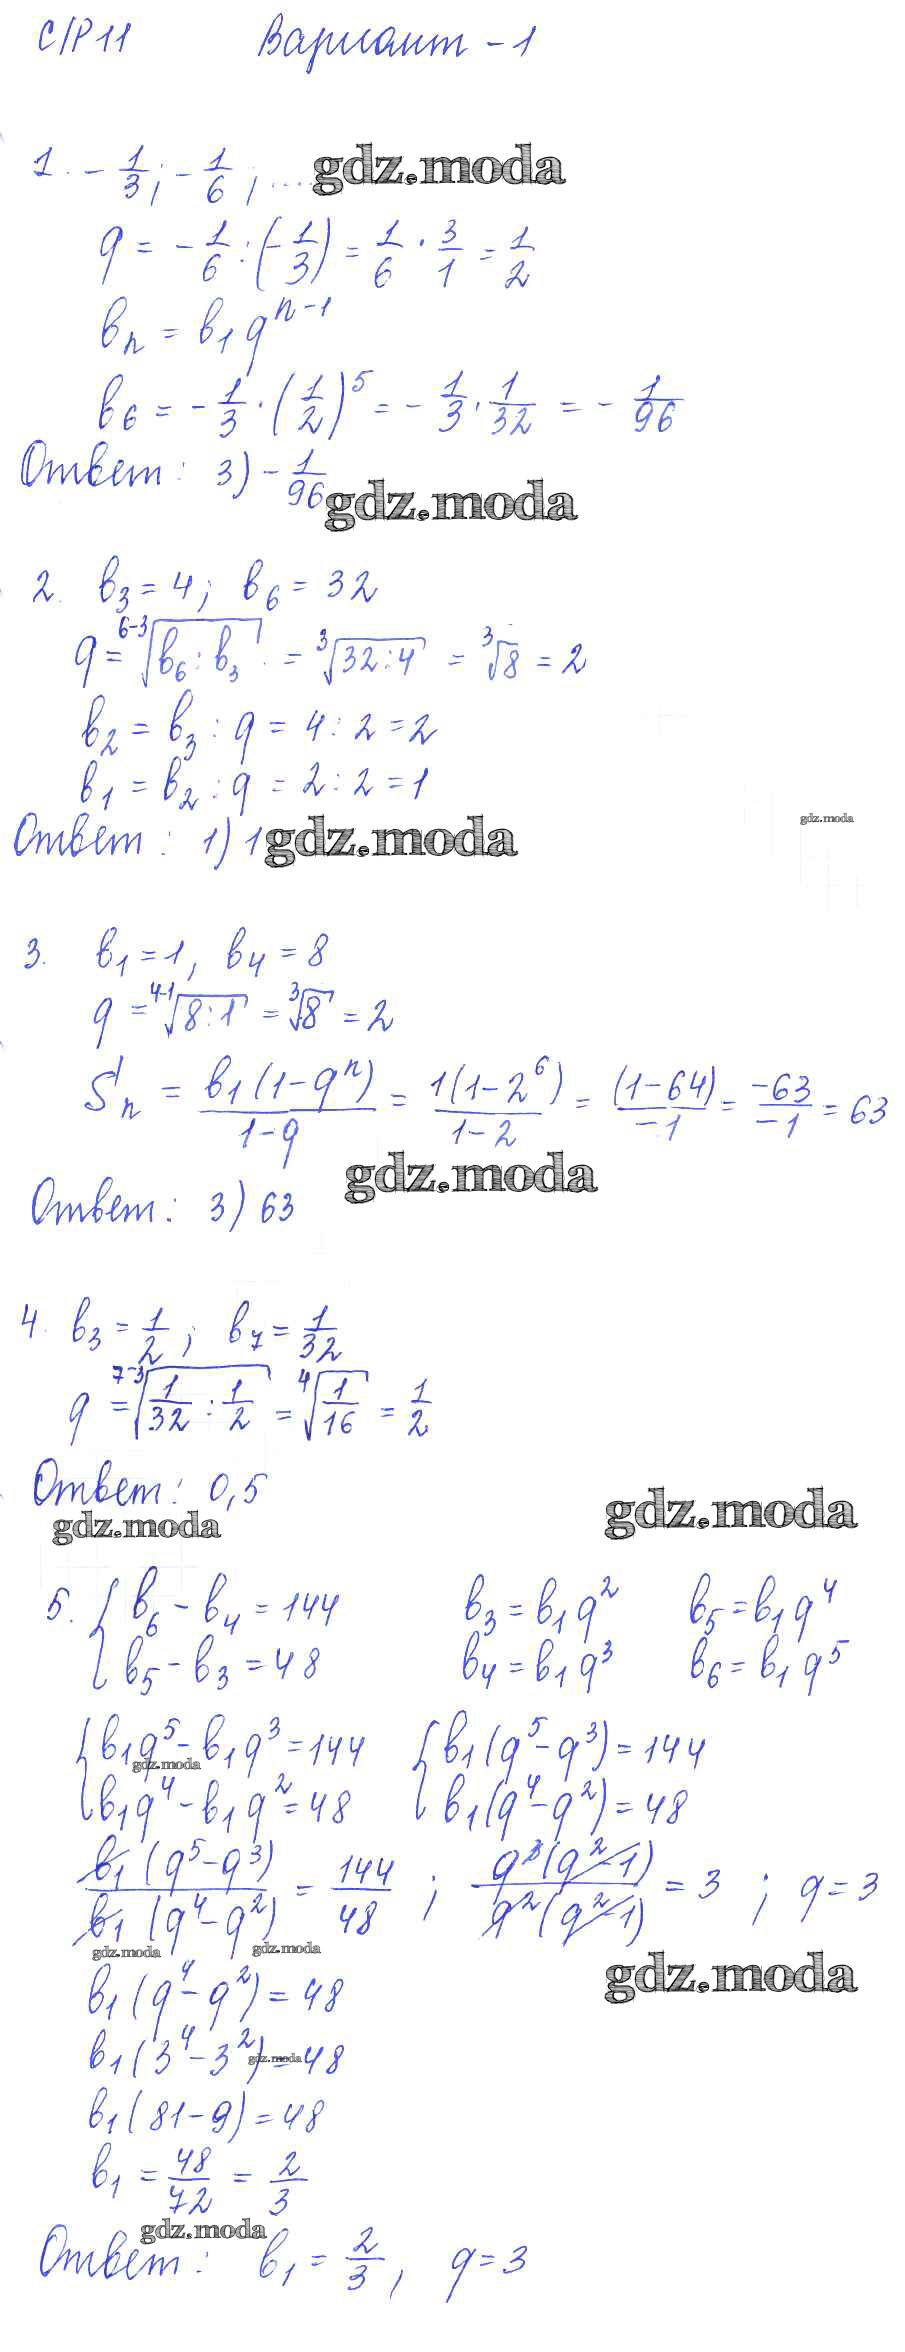 С/Р 11 Вариант - 1
1. -1/3; -1/6; .... gdz.moda
q = -1/6 : (-1/3) = 1/6 · 3/1 = 1/2
bₙ = b₁qⁿ⁻¹
b₆ = -1/3 · (1/2)⁵ = -1/3 · 1/32 = -1/96
Ответ: 3) -1/96 gdz.moda
2. b₃ = 4; b₆ = 32
q = ⁶⁻³√(b₆ : b₃) = ³√(32:4) = ³√8 = 2
b₂ = b₃ : q = 4 : 2 = 2
b₁ = b₂ : q = 2 : 2 = 1
Ответ: 1) 1 gdz.moda gdz.moda
3. b₁ = 1, b₄ = 8
q = ⁴⁻¹√(8:1) = ³√8 = 2
Sₙ = b₁(1-qⁿ)/(1-q) = 1(1-2⁶)/(1-2) = (1-64)/-1 = -63/-1 = 63
gdz.moda
Ответ: 3) 63
4. b₃ = 1/2; b₇ = 1/32
q = ⁷⁻³√(1/32 : 1/2) = ⁴√(1/16) = 1/2
Ответ: 0,5
gdz.moda gdz.moda
5. { b₆ - b₄ = 144 b₃ = b₁q² b₅ = b₁q⁴
b₅ - b₃ = 48 b₄ = b₁q³ b₆ = b₁q⁵
{ b₁q⁵ - b₁q³ = 144 { b₁(q⁵ - q³) = 144
gdz.moda
b₁q⁴ - b₁q² = 48 b₁(q⁴ - q²) = 48
b₁(q⁵ - q³)/b₁(q⁴ - q²) = 144/48 ; q³(q² - 1)/q²(q² - 1) = 3 ; q = 3
gdz.moda gdz.moda gdz.moda
b₁(q⁴ - q²) = 48
b₁(3⁴ - 3²) = 48 gdz.moda
b₁(81 - 9) = 48
b₁ = 48/72 = 2/3
gdz.moda
Ответ: b₁ = 2/3, q = 3